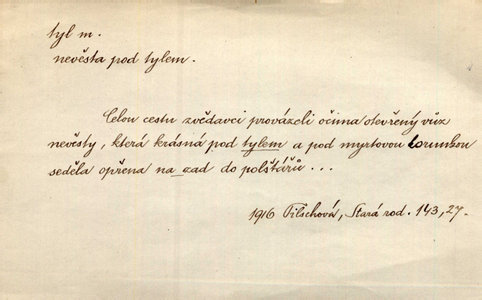 tyl m.
nevěsta pod tylem.
Celou cestu zvědavci provázeli očima otevřený vůz
nevěsty, která krásná pod tylem a pod myrtovou korunkou
seděla opřena na zad do polštářů...
1916 Tilschová, Stará rod. 143,27.